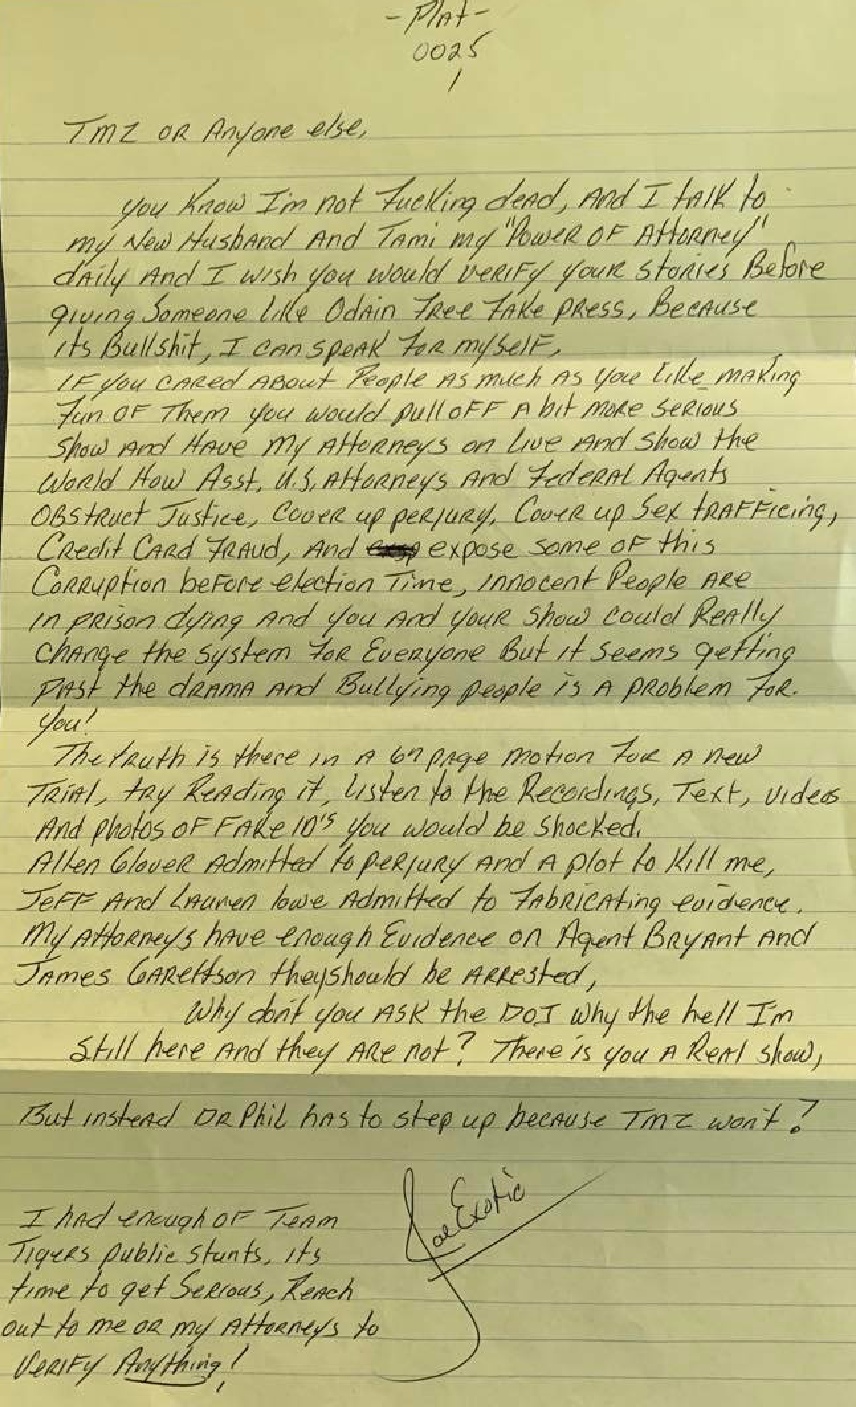 -Plat-
0025
1
TMZ OR Anyone else,
you Know I'm not Fucking dead, And I talk to
my New Husband And Tami my "Power OF Attorney"
daily And I wish you would verify your stories Before
giving Someone like Odain Free Fake press, Because
its Bullshit, I can speak For myself,
IF you cared About People As much As you like making
Fun OF Them you would pull OFF A bit more serious
show And Have My Attorneys on live And show the
World How Asst. U.S. Attorneys And Federal Agents
OBstruct Justice, Cover up perjury, Cover up Sex trafficing,
Credit Card Fraud, And expose some of this
Corruption before election Time, innocent People Are
in prison dying And you And your show could Really
change the system For Everyone But it seems getting
past the drama And Bullying people is A problem For
you!
The truth is there in A 67 page motion For A new
Trial, try Reading it, listen to the Recordings, Text, videos
And photos of Fake ID's you would be shocked.
Allen Glover Admitted to perjury And A plot to Kill me,
Jeff And Lauren lowe Admitted to Fabricating evidence.
My Attorneys have enough Evidence on Agent Bryant And
James Garettson they should be Arrested,
Why don't you Ask the DOJ why the hell I'm
Still here And they Are not? There is you A Real show,
But instead DR Phil has to step up because TMZ won't?
Joe Exotic
I had enough OF Team
Tigers public stunts, its
time to get Serious, Reach
out to me or my Attorneys to
Verify Anything!